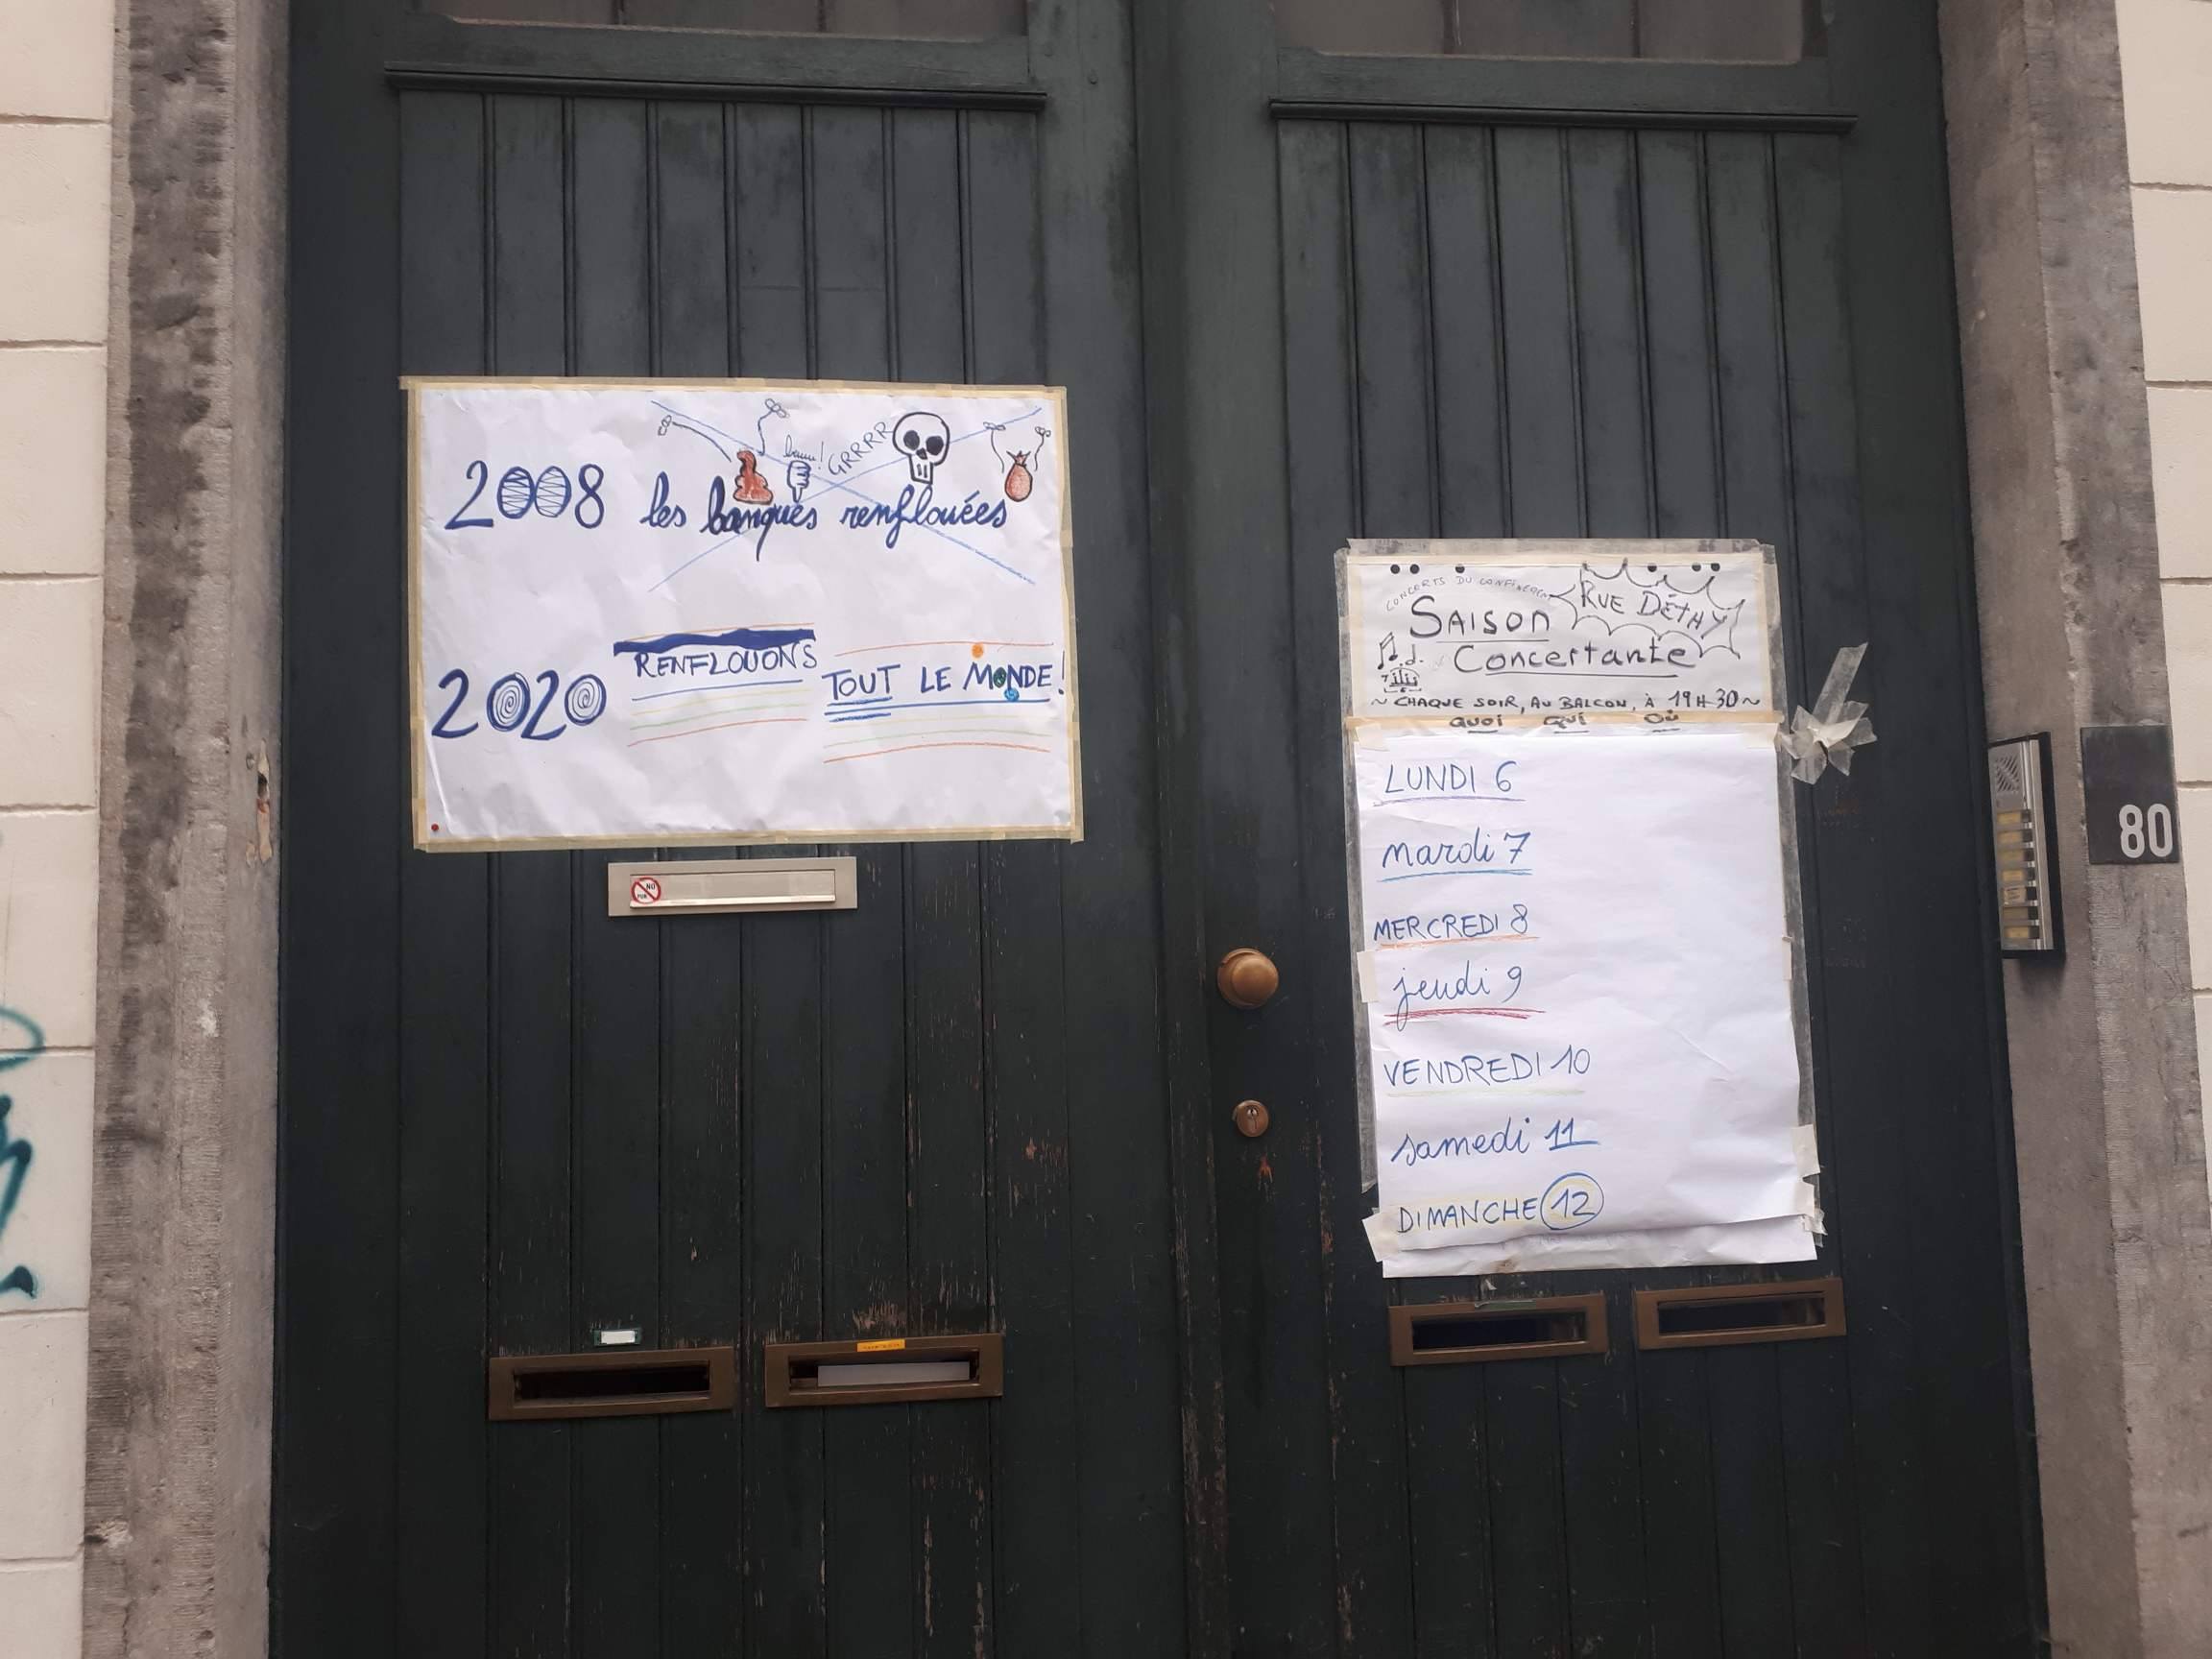 GRRRR
2008 les banques renflouées
2020 RENFLOUONS TOUT LE MONDE!
NO PUB
CONCERTS DU CONFINEMENT
RUE DÉTHY
SAISON
Concertante
~ CHAQUE SOIR, AU BALCON, À 19H30 ~
QUOI QUI OÙ
LUNDI 6
mardi 7
MERCREDI 8
jeudi 9
VENDREDI 10
samedi 11
DIMANCHE 12
80